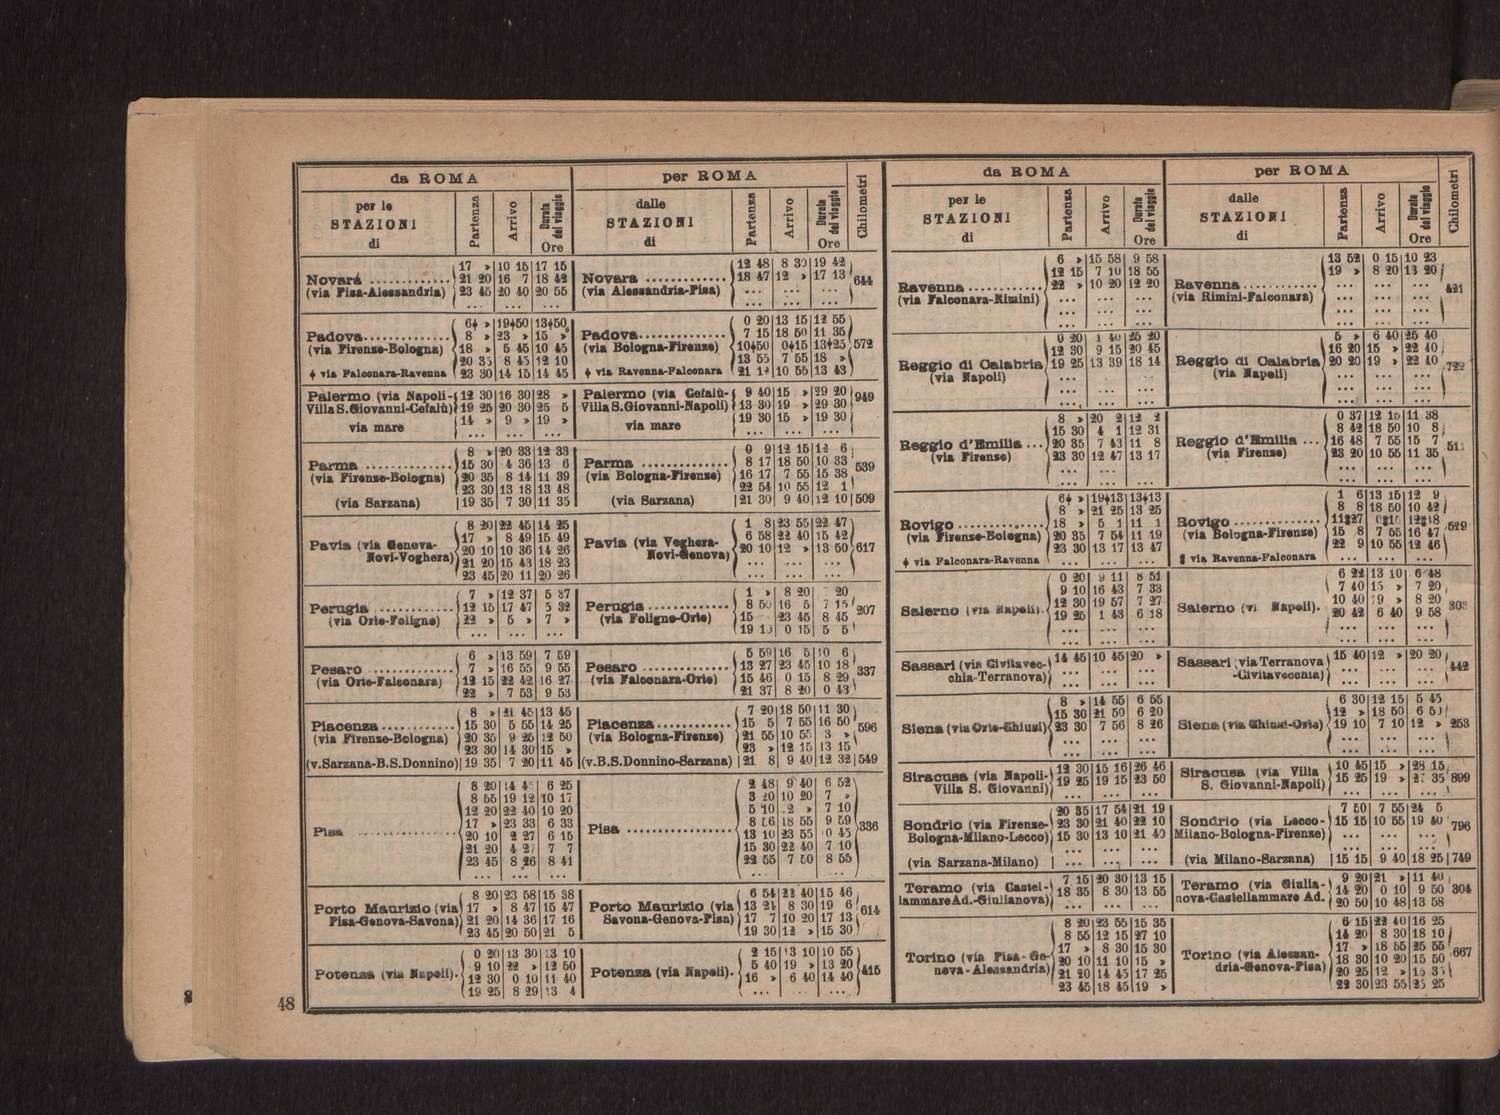 da ROMA
per ROMA
Chilometri
per le STAZIONI di
Partenza
Arrivo
Durata del viaggio Ore
dalle STAZIONI di
Partenza
Arrivo
Durata del viaggio Ore
Novara (via Pisa-Alessandria)
17 » 10 15 17 15
21 20 16 7 18 42
23 45 20 40 20 55
... ... ...
Novara (via Alessandria-Pisa)
12 48 8 30 19 42
18 47 12 » 17 13
... ... ...
... ... ...
644
Padova (via Firenze-Bologna)
ϕ via Falconara-Ravenna
6ϕ » 19ϕ50 13ϕ50
8 » 23 » 15 »
18 » 5 45 10 45
20 35 8 45 12 10
23 30 14 15 14 45
Padova (via Bologna-Firenze)
ϕ via Ravenna-Falconara
0 20 13 15 12 55
7 15 18 50 11 35
10ϕ50 0ϕ15 13ϕ25
13 55 7 55 18 »
10 55 13 43
572
Palermo (via Napoli-Villa S. Giovanni-Cefalù)
12 30 16 30 28 »
19 25 20 30 25 5
via mare
14 » 9 » 19 »
... ... ...
Palermo (via Cefalù-Villa S. Giovanni-Napoli)
9 40 15 » 29 20
13 30 19 » 29 30
via mare
19 30 15 » 19 30
... ... ...
949
Parma (via Firenze-Bologna)
8 » 20 33 12 33
15 30 4 36 13 6
20 35 8 14 11 39
23 30 13 18 13 48
(via Sarzana) 19 35 7 30 11 35
Parma (via Bologna-Firenze)
0 9 12 15 12 6
8 17 18 50 10 33
16 17 7 55 15 38
22 54 10 55 12 1
539
(via Sarzana) 21 30 9 40 12 10 509
Pavia (via Genova-Novi-Voghera)
8 20 22 45 14 25
17 » 8 49 15 49
20 10 10 36 14 26
21 20 15 43 18 23
23 45 20 11 20 26
Pavia (via Voghera-Novi-Genova)
1 8 23 55 22 47
6 58 22 40 15 42
20 10 12 » 13 50
... ... ...
... ... ...
617
Perugia (via Orte-Foligno)
7 » 12 37 5 37
12 15 17 47 5 32
22 » 5 » 7 »
... ... ...
Perugia (via Foligno-Orte)
1 » 8 20 20
8 50 16 5 7 15
15 23 45 8 45
19 10 0 15 5 5
207
Pesaro (via Orte-Falconara)
6 » 13 59 7 59
7 » 16 55 9 55
12 15 22 42 16 27
22 » 7 53 9 53
Pesaro (via Falconara-Orte)
5 59 16 5 10 6
13 27 23 45 10 18
15 46 0 15 8 29
21 37 8 20 0 43
337
Piacenza (via Firenze-Bologna)
8 » 21 45 13 45
15 30 5 55 14 25
20 35 9 25 12 50
23 30 14 30 15 »
(v. Sarzana-B.S. Donnino) 19 35 7 20 11 45
Piacenza (via Bologna-Firenze)
7 20 18 50 11 30
15 5 7 55 16 50
21 55 10 55 3 »
23 » 12 15 13 15
596
(v. B.S. Donnino-Sarzana) 21 8 9 40 12 32 549
Pisa
8 20 14 45 6 25
8 55 19 12 10 17
12 20 22 40 10 20
17 » 23 33 6 33
20 10 2 27 6 15
21 20 4 27 7 7
23 45 8 26 8 41
... ... ...
Pisa
2 48 9 40 6 52
3 20 10 20 7 »
5 10 7 10
8 56 18 55 9 59
13 10 23 55 10 45
15 30 22 40 7 10
22 55 7 50 8 55
... ... ...
336
Porto Maurizio (via Pisa-Genova-Savona)
8 20 23 58 15 38
17 » 8 47 15 47
21 20 14 36 17 16
23 45 20 50 21 5
Porto Maurizio (via Savona-Genova-Pisa)
6 54 22 40 15 46
13 24 8 30 19 6
17 7 10 20 17 13
19 30 12 » 15 30
614
Potenza (via Napoli).
0 20 13 30 13 10
9 10 22 » 12 50
12 30 0 10 11 40
19 25 8 29 13 4
Potenza (via Napoli).
2 15 13 10 10 55
5 40 19 » 13 20
16 » 6 40 14 40
... ... ...
415
48
da ROMA
per ROMA
Chilometri
per le STAZIONI di
Partenza
Arrivo
Durata del viaggio Ore
dalle STAZIONI di
Partenza
Arrivo
Durata del viaggio Ore
Ravenna (via Falconara-Rimini)
6 » 15 58 9 58
12 15 7 10 18 55
22 » 10 20 12 20
... ... ...
... ... ...
Ravenna (via Rimini-Falconara)
13 52 0 15 10 23
19 » 8 20 13 20
... ... ...
... ... ...
... ... ...
421
Reggio di Calabria (via Napoli)
0 20 1 40 25 20
12 30 9 15 20 45
19 25 13 39 18 14
... ... ...
... ... ...
Reggio di Calabria (via Napoli)
5 » 6 40 25 40
16 20 15 » 22 40
20 20 19 » 22 40
... ... ...
... ... ...
722
Reggio d'Emilia (via Firenze)
8 » 20 2 12 2
15 30 4 1 12 31
20 35 7 43 11 8
23 30 12 47 13 17
... ... ...
Reggio d'Emilia (via Firenze)
0 37 12 15 11 38
8 42 18 50 10 8
16 48 7 55 15 7
23 20 10 55 11 35
... ... ...
Rovigo (via Firenze-Bologna)
ϕ via Falconara-Ravenna
6ϕ » 19ϕ13 13ϕ13
8 » 21 25 13 25
18 » 5 1 11 1
20 35 7 54 11 19
23 30 13 17 13 47
... ... ...
Rovigo (via Bologna-Firenze)
via Ravenna-Falconara
1 6 13 15 12 9
8 8 18 50 10 42
11 27 0 15 12 48
15 8 7 55 16 47
22 9 10 55 12 46
... ... ...
529
Salerno (via Napoli).
0 20 9 11 8 51
9 10 16 43 7 33
12 30 19 57 7 27
19 25 1 43 6 18
... ... ...
... ... ...
Salerno Napoli).
6 22 13 10 6 48
7 40 15 » 7 20
10 40 19 » 8 20
20 42 6 40 9 58
... ... ...
... ... ...
Sassari (via Civitavecchia-Terranova)
14 45 10 45 20 »
... ... ...
... ... ...
Sassari (via Terranova-Civitavecchia)
15 40 12 » 20 20
... ... ...
... ... ...
442
Siena (via Orte-Chiusi)
8 » 14 55 6 55
15 30 21 50 6 20
23 30 7 56 8 26
... ... ...
... ... ...
Siena (via Chiusi-Orte)
6 30 12 15 5 45
12 » 18 50 6 50
19 10 7 10 12 »
... ... ...
... ... ...
253
Siracusa (via Napoli-Villa S. Giovanni)
12 30 15 16 26 46
19 25 19 15 23 50
Siracusa (via Villa S. Giovanni-Napoli)
10 45 15 » 28 15
15 25 19 » 27 35
899
Sondrio (via Firenze-Bologna-Milano-Lecco)
20 35 17 54 21 19
23 30 21 40 22 10
15 30 13 10 21 40
(via Sarzana-Milano) ... ... ...
Sondrio (via Lecco-Milano-Bologna-Firenze)
7 50 7 55 24 5
15 15 10 55 19 40
... ... ...
... ... ...
796
(via Milano-Sarzana) 15 15 9 40 18 25 749
Teramo (via Castellammare Ad.-Giulianova)
7 15 20 30 13 15
18 35 8 30 13 55
Teramo (via Giulianova-Castellammare Ad.
9 20 21 » 11 40
14 20 0 10 9 50
20 50 10 48 13 58
304
Torino (via Pisa-Genova-Alessandria)
8 20 23 55 15 35
8 55 12 15 27 10
17 » 8 30 15 30
20 10 11 10 15 »
21 20 14 45 17 25
23 45 18 45 19 »
Torino (via Alessandria-Genova-Pisa)
6 15 22 40 16 25
14 20 8 30 18 10
17 » 18 55 25 55
18 30 10 20 15 50
20 25 12 »
22 30 23 55 25 25
667